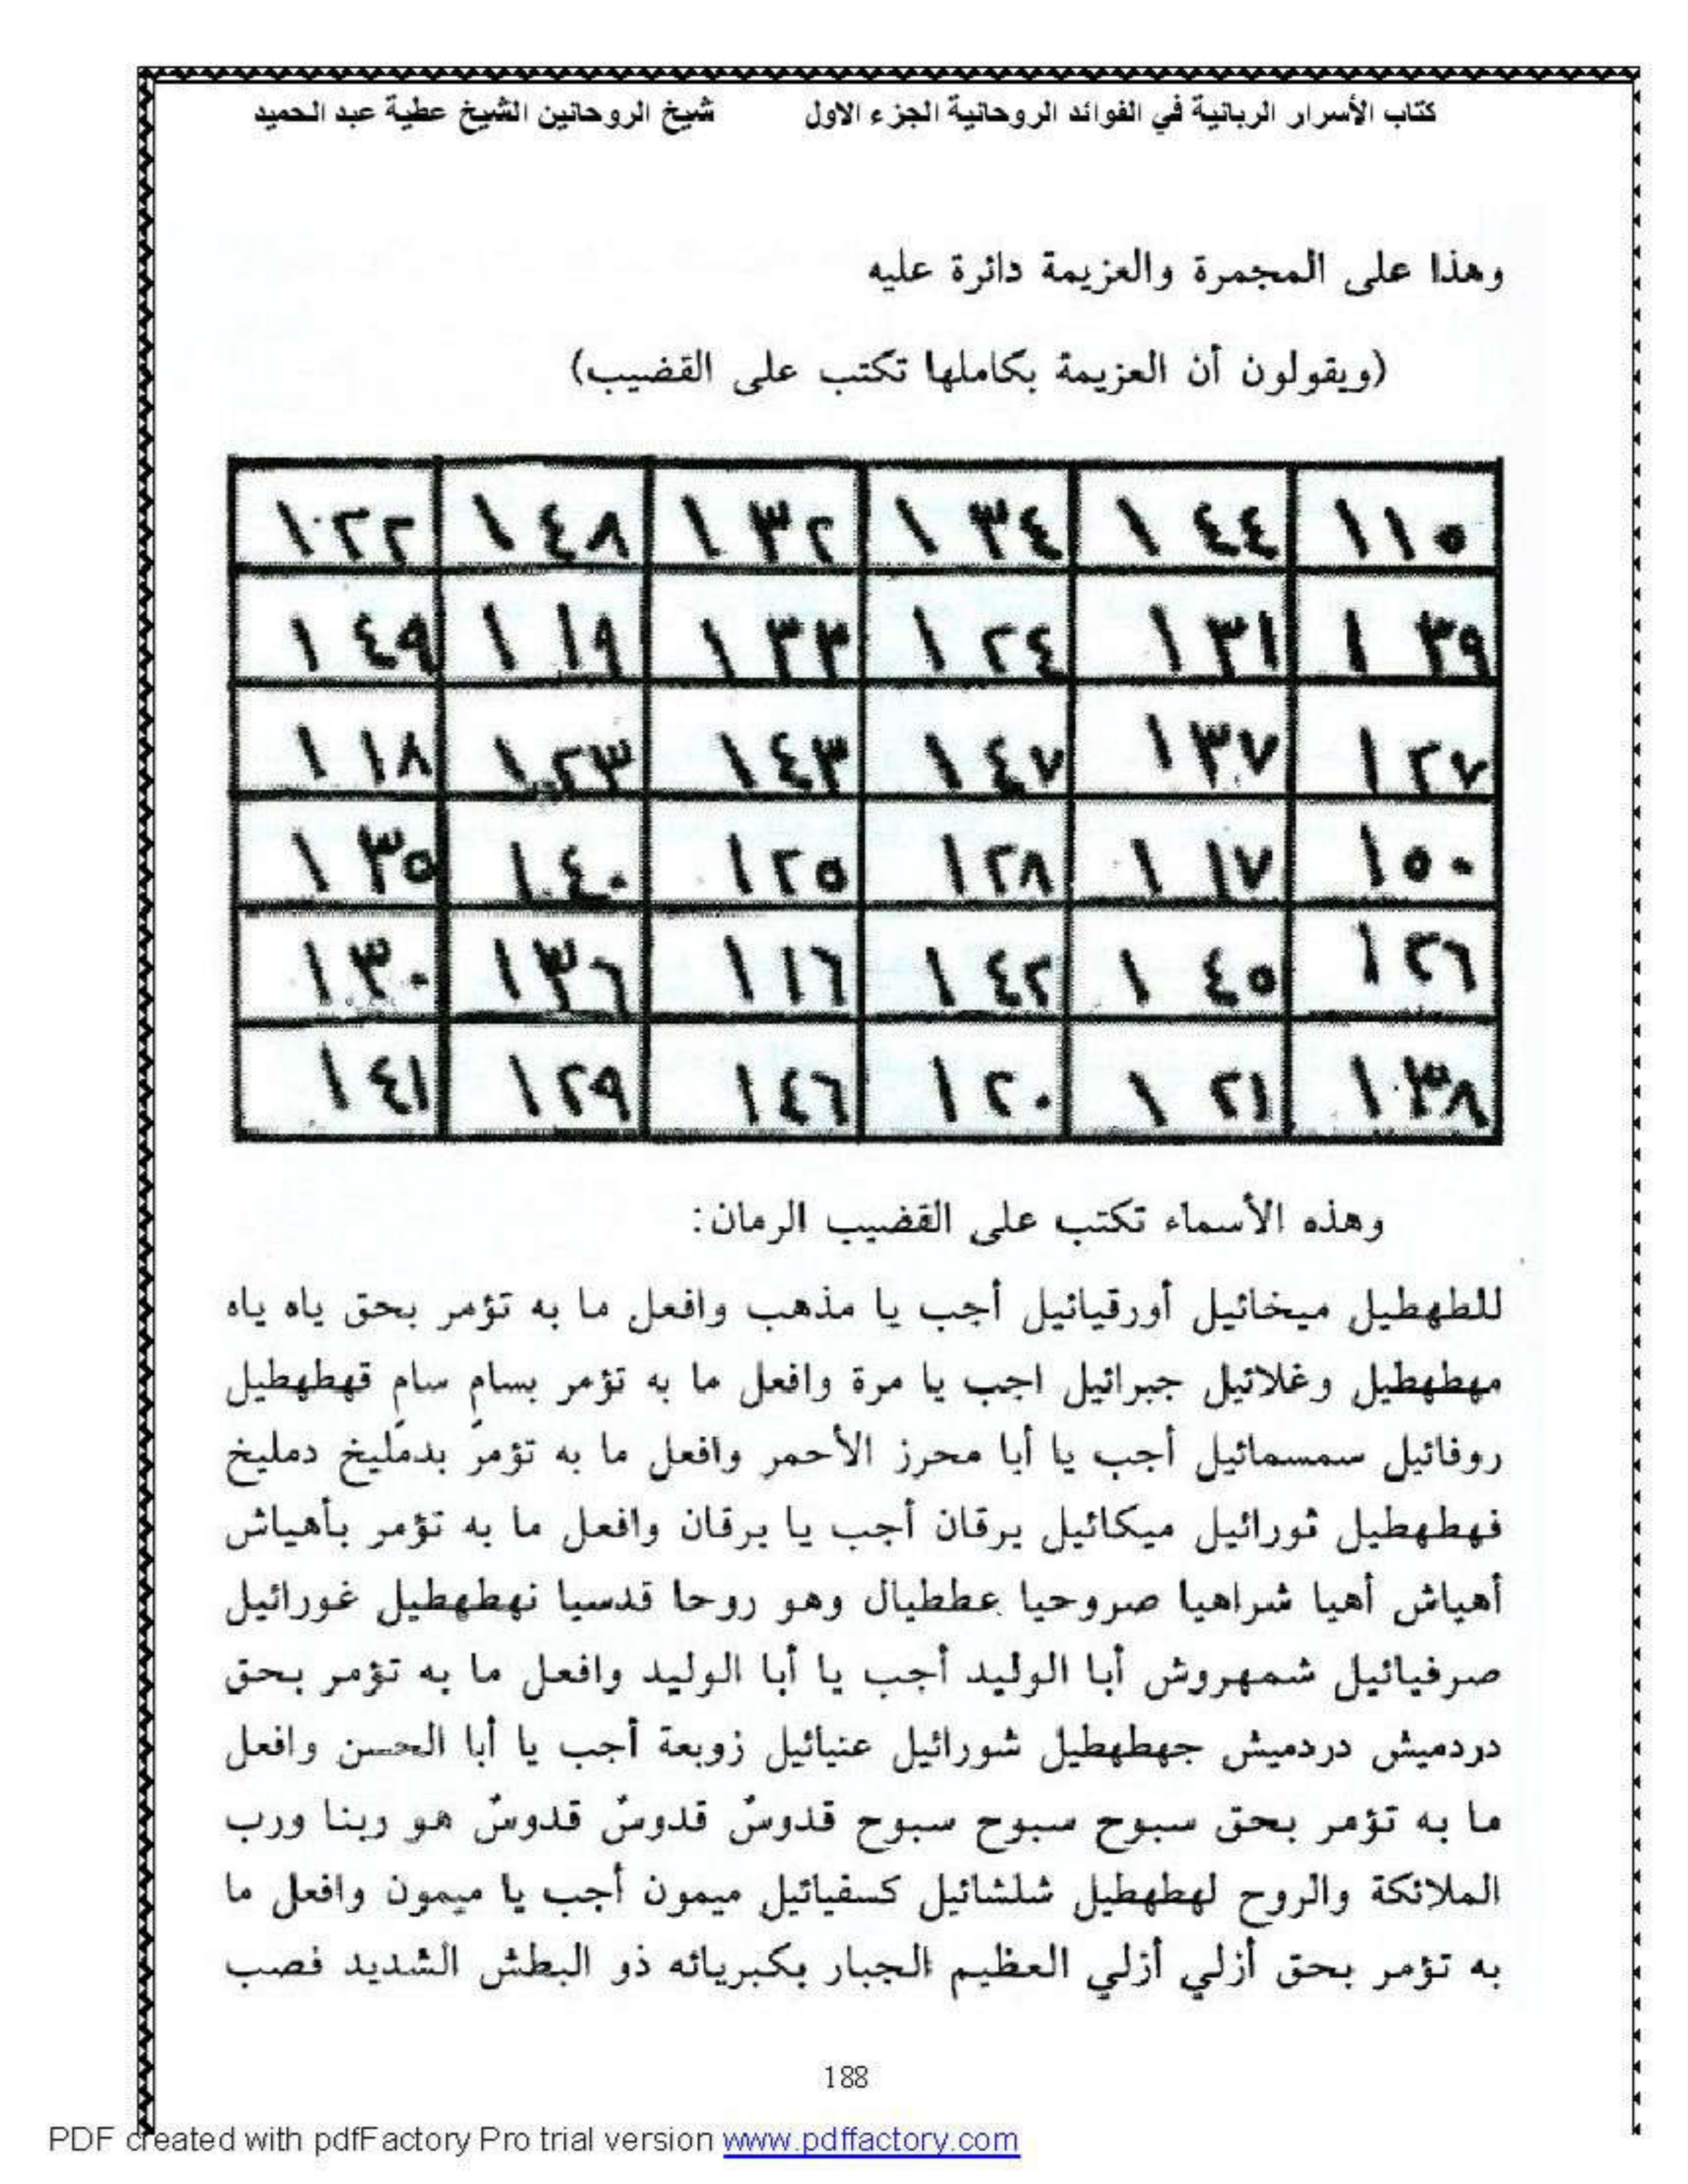 كتاب الأسرار الربانية في الفوائد الروحانية الجزء الاول شيخ الروحانين الشيخ عطية عبد الحميد
وهذا على المجمرة والعزيمة دائرة عليه
(ويقولون أن العزيمة بكاملها تكتب على القضيب)
١١٥ ١٤٤ ١٣٤ ١٣٢ ١٤٨ ١٢٢
١٣٩ ١٣١ ١٢٤ ١٣٣ ١١٩ ١٤٩
١٢٧ ١٣٧ ١٤٧ ١٤٣ ١٢٣ ١١٨
١٥٠ ١١٧ ١٢٨ ١٢٥ ١٤٠ ١٣٥
١٢٦ ١٤٥ ١٤٢ ١١٦ ١٣٦ ١٣٠
١٣٨ ١٢١ ١٢٠ ١٤٦ ١٢٩ ١٤١
وهذه الأسماء تكتب على القضيب الرمان:
للطهطيل ميخائيل أورقيائيل أجب يا مذهب وافعل ما به تؤمر بحق ياه ياه
مهطهطيل وغلائيل جبرائيل اجب يا مرة وافعل ما به تؤمر بسامٍ سامٍ قهطهطيل
روفائيل سمسمائيل أجب يا أبا محرز الأحمر وافعل ما به تؤمر بدمليخ دمليخ
فهطهطيل ثورائيل ميكائيل يرقان أجب يا يرقان وافعل ما به تؤمر بأهياش
أهياش أهيا شراهيا صروحيا عططيال وهو روحا قدسيا نهطهطيل غورائيل
صرفيائيل شمهروش أبا الوليد أجب يا أبا الوليد وافعل ما به تؤمر بحق
دردميش دردميش جهطهطيل شورائيل عنيائيل زوبعة أجب يا أبا الحسن وافعل
ما به تؤمر بحق سبوح سبوح سبوح قدوسٌ قدوسٌ قدوسٌ هو ربنا ورب
الملائكة والروح لهطهطيل شلشائيل كسفيائيل ميمون أجب يا ميمون وافعل ما
به تؤمر بحق أزلي أزلي العظيم الجبار بكبريائه ذو البطش الشديد فصب
188
PDF created with pdfFactory Pro trial version www.pdffactory.com